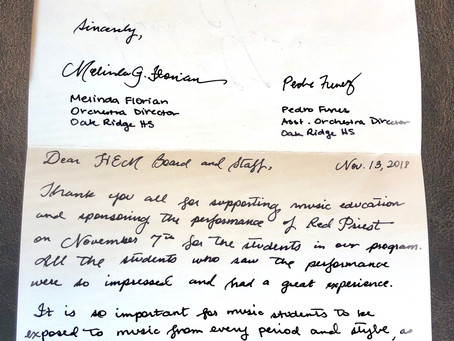 Sincerely,
Melinda G. Florian Pedro Funes
Melinda Florian Pedro Funes
Orchestra Director Asst. Orchestra Director
Oak Ridge HS Oak Ridge HS
Dear Board and Staff, Nov. 13, 2018
Thank you all for supporting music education
and sponsoring the performance of Red Priest
on November 7th for the students in our program.
All the students who saw the performance
were so impressed and had a great experience.
It is so important for music students to be
exposed to music from every period and style, as